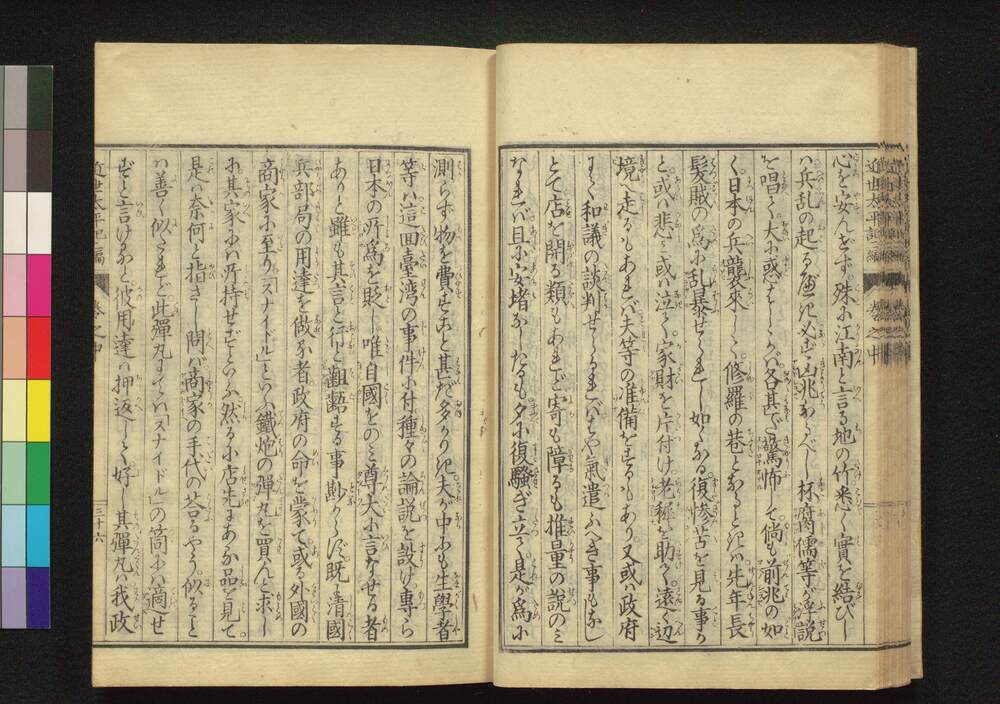 近世太平記二編 巻之中
心を安んぜず殊に江南と言る地の竹悉く實を結びし
ハ兵乱の起る處必ず凶兆ならべし抔腐儒等が妄説
を唱て大に惑ハしゝかバ各甚だ驚怖して倘も前兆の如
く日本の兵襲来して修羅の巷とならんときハ先年長
髪賊の為に乱暴せられし如くなる復惨苦を見る事か
と或ハ悲ミ或ハ泣て家財を片付け老稚を助て遠く辺
境へ走るもあれバ夫等の准備をするもあり又或ハ政府
にて和議の談判せらるれバはや氣遣ふべき事もなし
とて店を開る類もあれど寄も障るも推量の説のミ
なれバ且に安堵なしたるも夕に復騒ぎ立て是が為に
測らず物を費すこと甚だ多かりき夫が中にも生學者
等ハ這回臺湾の事件に付種々の論説を設け専ら
日本の所為を貶し唯自國をのミ尊大に言なせる者
ありと雖も其言と行と齟齬する事尠からず既に清國
兵部局の用達を做る者政府の命を蒙て或る外國の
商家に至り「スナイドル」といふ鐵炮の彈丸を買んと求し
に其家にハ所持せずといふ然るに店先にある品を見て
是ハ奈何と指さし問バ商家の手代の答るやう似ること
ハ善く似たれど此彈丸にてハ「スナイドル」の筒にハ適せ
ずと言けると彼用達ハ押返して好し其彈丸ハ我政
近世太平記二編 巻之中 三十六